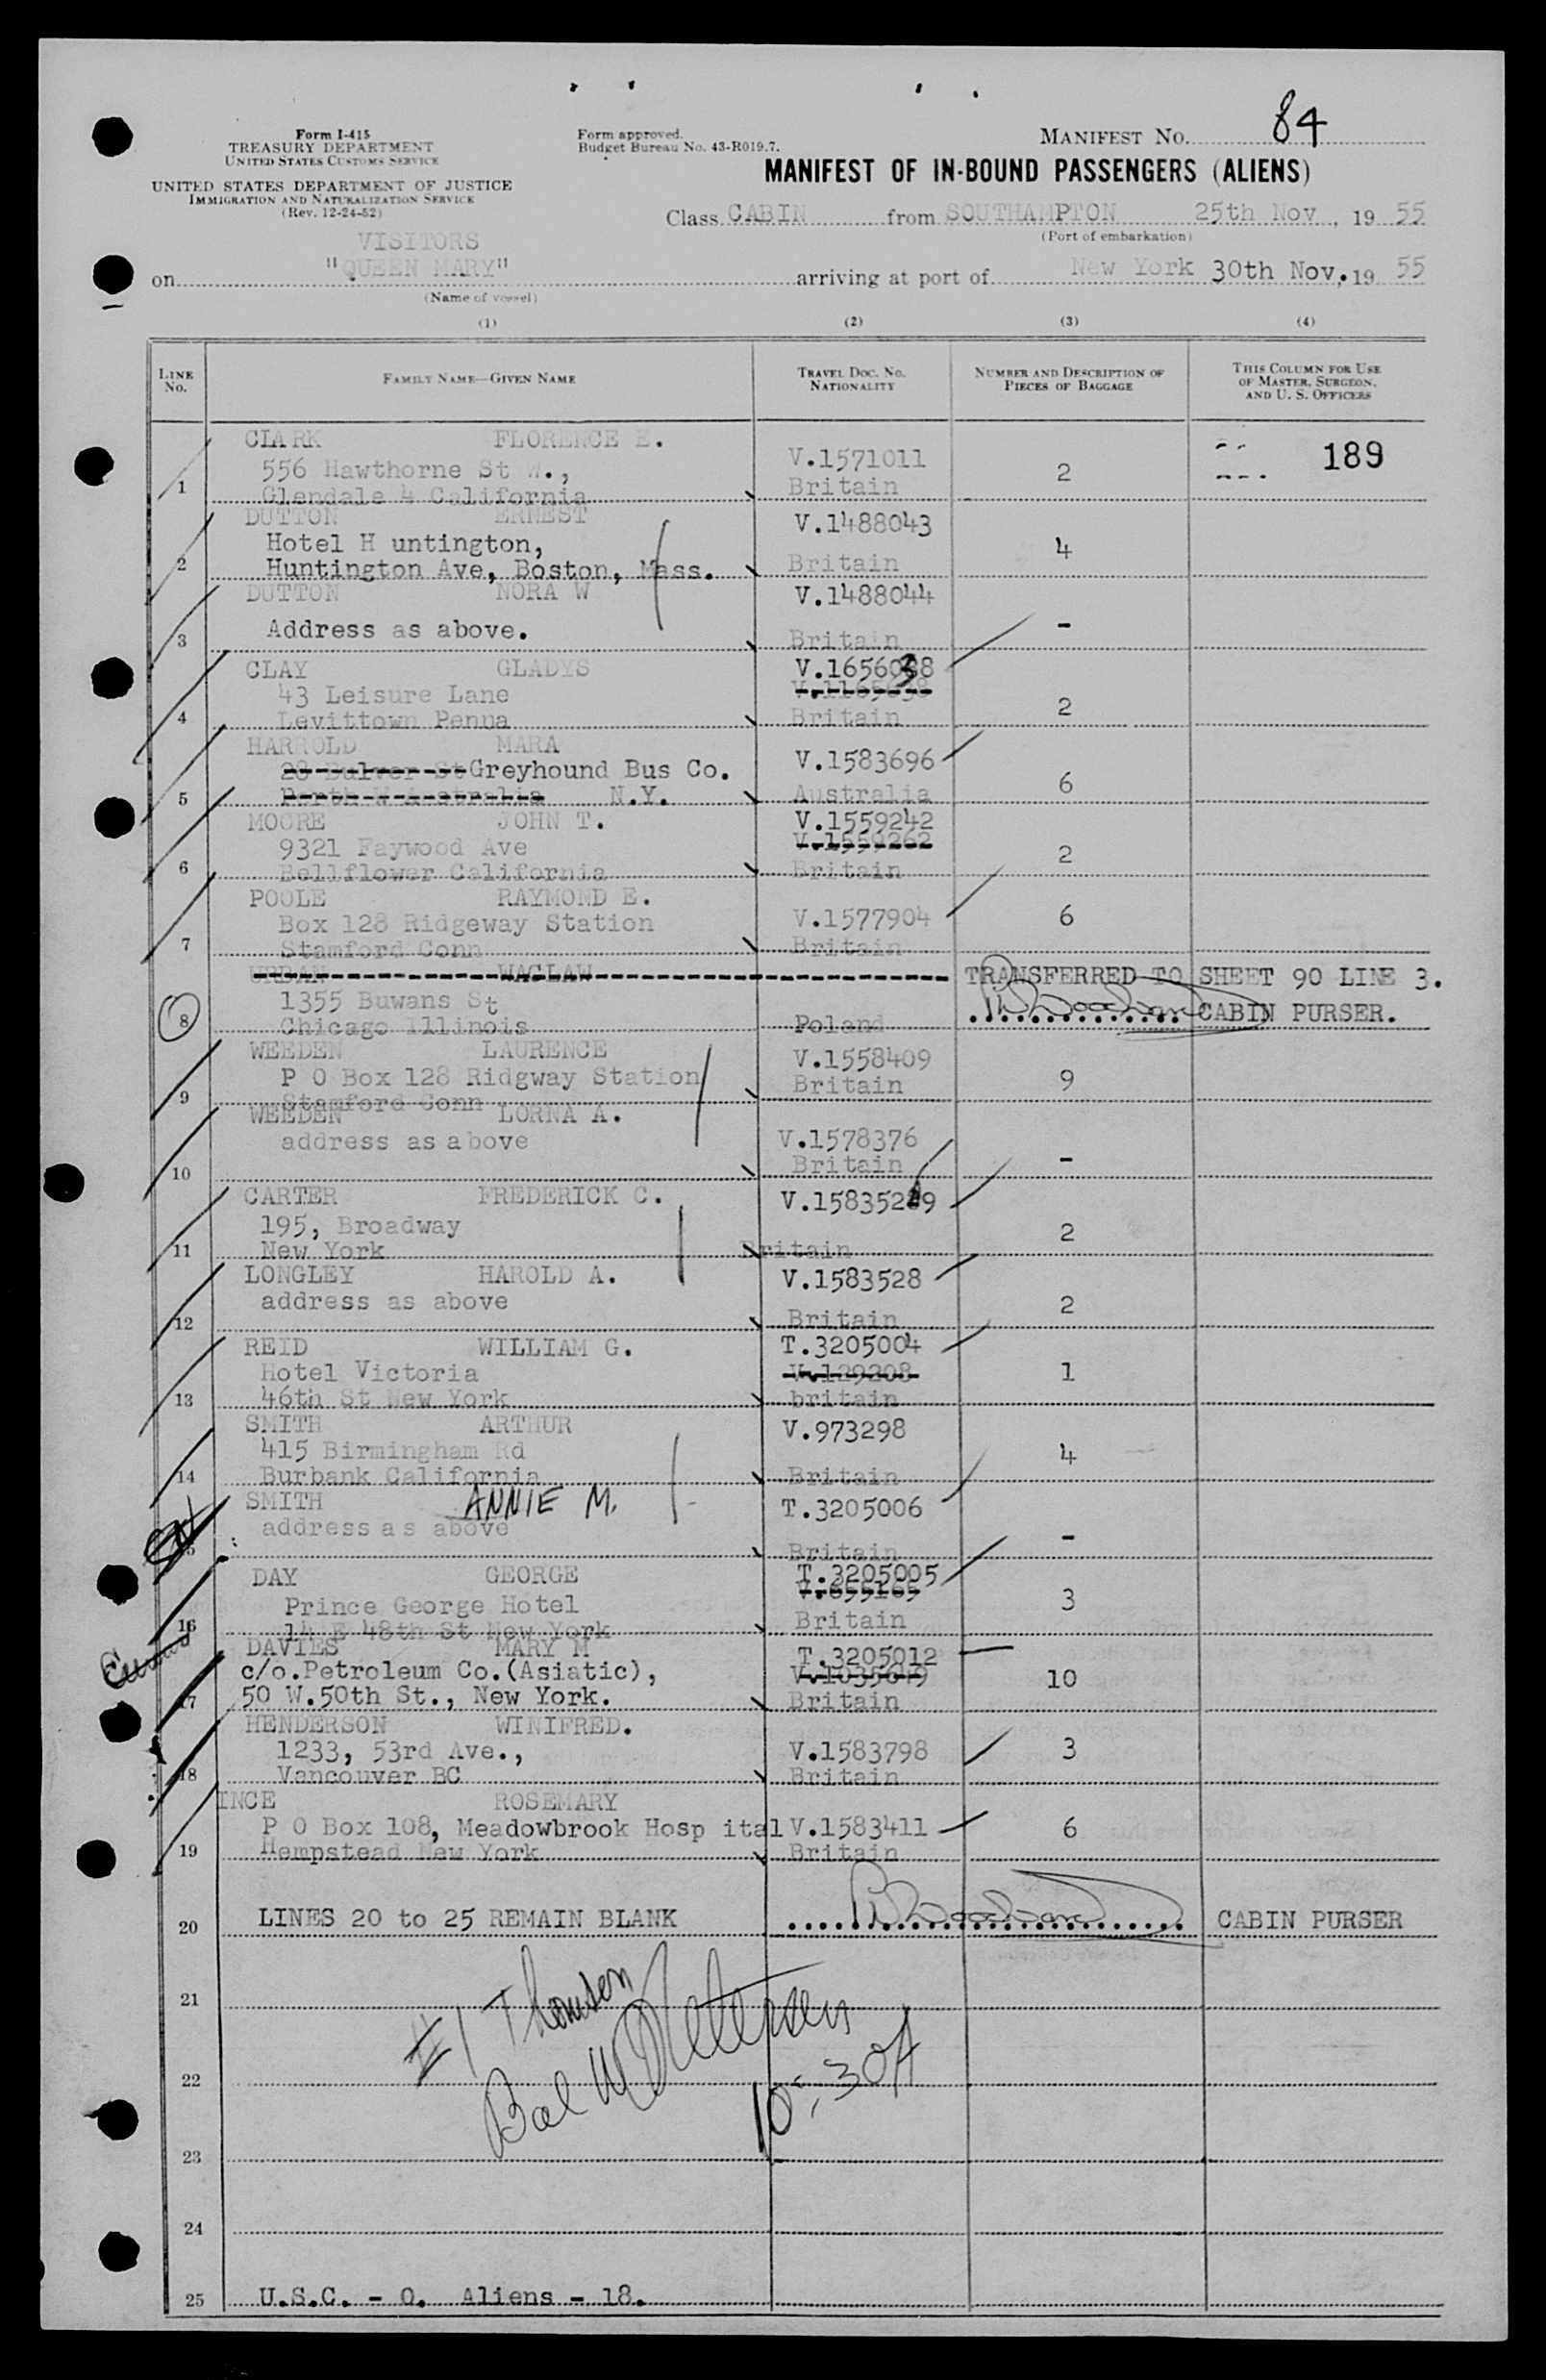 Form I-415
TREASURY DEPARTMENT
UNITED STATES CUSTOMS SERVICE
UNITED STATES DEPARTMENT OF JUSTICE
IMMIGRATION AND NATURALIZATION SERVICE
(Rev. 12-24-52)
Form approved.
Budget Bureau No. 43-R019.7.
MANIFEST NO. 84
MANIFEST OF IN-BOUND PASSENGERS (ALIENS)
Class CABIN from SOUTHAMPTON 25th Nov, 19 55
(Port of embarkation)
VISITORS
on "QUEEN MARY" arriving at port of New York 30th Nov. 19 55
(Name of vessel)
(1) (2) (3) (4)
LINE No. FAMILY NAME—GIVEN NAME TRAVEL DOC. NO. NATIONALITY NUMBER AND DESCRIPTION OF PIECES OF BAGGAGE THIS COLUMN FOR USE OF MASTER, SURGEON, AND U. S. OFFICERS
CLARK FLORENCE E.
556 Hawthorne St W., V.1571011 2 189
1 Glendale 4 California Britain
DUTTON ERNEST V.1488043
Hotel H untington, 4
2 Huntington Ave, Boston, Mass. Britain
DUTTON NORA W V.1488044
3 Address as above. Britain -
CLAY GLADYS V.1656038
43 Leisure Lane
4 Levittown Penna Britain 2
HARROLD MARA V.1583696
28 Bulwer St Greyhound Bus Co. 6
5 Perth W Australia N.Y. Australia
MOORE JOHN T. V.1559242
9321 Faywood Ave V.1559262 2
6 Bellflower California Britain
POOLE RAYMOND E.
Box 128 Ridgeway Station V.1577904 6
7 Stamford Conn Britain
URBAN WACLAW TRANSFERRED TO SHEET 90 LINE 3.
1355 Buwans St CABIN PURSER.
8 Chicago Illinois Poland
WEEDEN LAURENCE V.1558409
P O Box 128 Ridgway Station Britain 9
9 Stamford Conn
WEEDEN LORNA A.
address as above V.1578376
10 Britain -
CARTER FREDERICK C. V.1583529
195, Broadway 2
11 New York Britain
LONGLEY HAROLD A. V.1583528
address as above 2
12 Britain
REID WILLIAM G. T.3205004
Hotel Victoria V.129208 1
13 46th St New York britain
SMITH ARTHUR V.973298
415 Birmingham Rd 4
14 Burbank California Britain
SMITH ANNIE M. T.3205006
address as above
15 Britain -
DAY GEORGE T.3205005
Prince George Hotel 3
16 14 E 48th St New York Britain
DAVIES MARY M T.3205012
c/o.Petroleum Co.(Asiatic), 10
17 50 W.50th St., New York. Britain
HENDERSON WINIFRED.
1233, 53rd Ave., V.1583798 3
18 Vancouver BC Britain
INCE ROSEMARY
P O Box 108, Meadowbrook Hosp ital V.1583411 6
19 Hempstead New York Britain
20 LINES 20 to 25 REMAIN BLANK CABIN PURSER
21 #1 Thomsen
22 Petersen
10:30A
23
24
25 U.S.C. - 0. Aliens - 18.